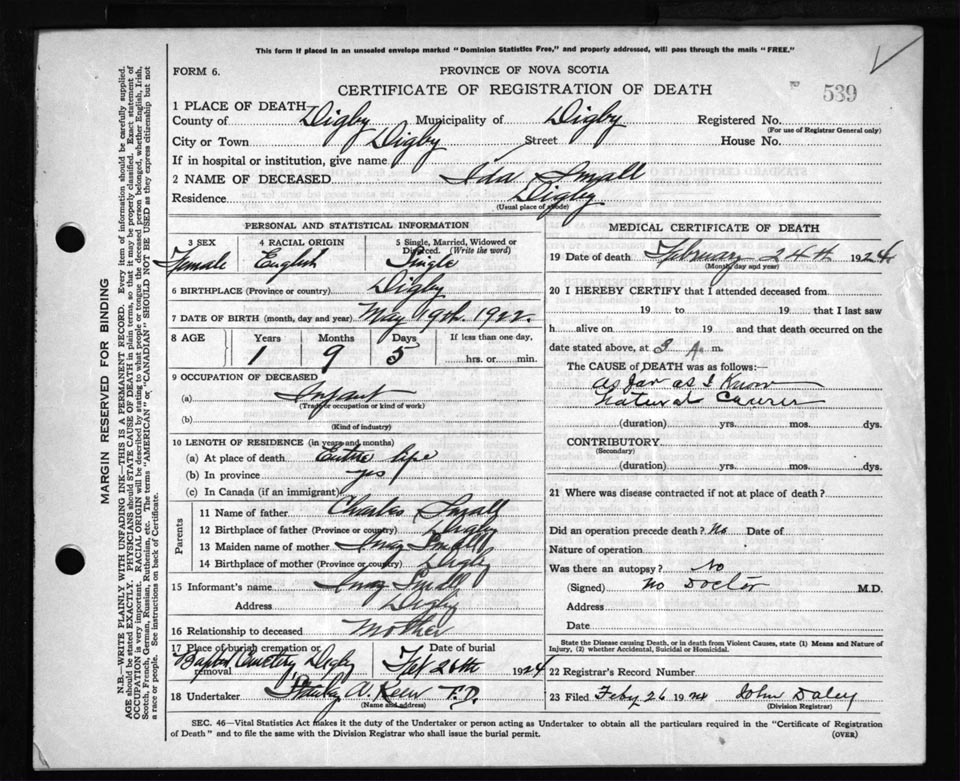 This form if placed in an unsealed envelope marked "Dominion Statistics Free," and properly addressed, will pass through the mails "FREE."
FORM 6.
PROVINCE OF NOVA SCOTIA
CERTIFICATE OF REGISTRATION OF DEATH
539
1 PLACE OF DEATH
County of Digby Municipality of Digby Registered No.
(For use of Registrar General only)
City or Town Digby Street House No.
If in hospital or institution, give name
2 NAME OF DECEASED Ida Small
Residence Digby
(Usual place of abode)
PERSONAL AND STATISTICAL INFORMATION
3 SEX 4 RACIAL ORIGIN 5 Single, Married, Widowed or Divorced. (Write the word)
Female English Single
6 BIRTHPLACE (Province or country) Digby
7 DATE OF BIRTH (month, day and year) May 19th. 1922.
8 AGE Years Months Days If less than one day,
1 9 5 hrs. or min.
9 OCCUPATION OF DECEASED
(a) Infant
(Trade or occupation or kind of work)
(b)
(Kind of industry)
10 LENGTH OF RESIDENCE (in years and months)
(a) At place of death Entire life
(b) In province yes
(c) In Canada (if an immigrant)
Parents
11 Name of father Charles Small
12 Birthplace of father (Province or country) Digby
13 Maiden name of mother Small
14 Birthplace of mother (Province or country) Digby
15 Informant's name Small
Address Digby
16 Relationship to deceased Mother
17 Place of burial cremation or removal Date of burial
Cemetery Digby Feb 26th 1924
18 Undertaker A. F.D.
(Name and address)
MEDICAL CERTIFICATE OF DEATH
19 Date of death February 24th 1924
(Month, day and year)
20 I HEREBY CERTIFY that I attended deceased from
19 to 19 that I last saw
h alive on 19 and that death occurred on
date stated above, at 3 A. m.
The CAUSE OF DEATH was as follows:
as far as I Know
natural Causes
(duration) yrs. mos. dys.
CONTRIBUTORY
(Secondary)
(duration) yrs. mos. dys.
21 Where was disease contracted if not at place of death?
Did an operation precede death? No Date of
Nature of operation
Was there an autopsy? No
(Signed) No Doctor M.D.
Address
Date
State the Disease causing Death, or in death from Violent Causes, state (1) Means and Nature of Injury, (2) whether Accidental, Suicidal or Homicidal.
22 Registrar's Record Number
23 Filed Feby 26 1924 John Daley
(Division Registrar)
SEC. 46—Vital Statistics Act makes it the duty of the Undertaker or person acting as Undertaker to obtain all the particulars required in the "Certificate of Registration
of Death" and to file the same with the Division Registrar who shall issue the burial permit.
(OVER)
MARGIN RESERVED FOR BINDING
N.B.—WRITE PLAINLY WITH UNFADING INK—THIS IS A PERMANENT RECORD. Every item of information should be carefully supplied.
AGE should be stated EXACTLY. PHYSICIANS should STATE CAUSE OF DEATH in plain terms, so that it may be properly classified. Exact statement of
OCCUPATION is very important. RACIAL ORIGIN will be described by stating to what people or tongue the deceased person belonged, whether English, Irish,
Scotch, French, German, Russian, Ruthenian, etc. The terms "AMERICAN" or "CANADIAN" SHOULD NOT BE USED as they express citizenship but not
a race or people. See instructions on back of Certificate.